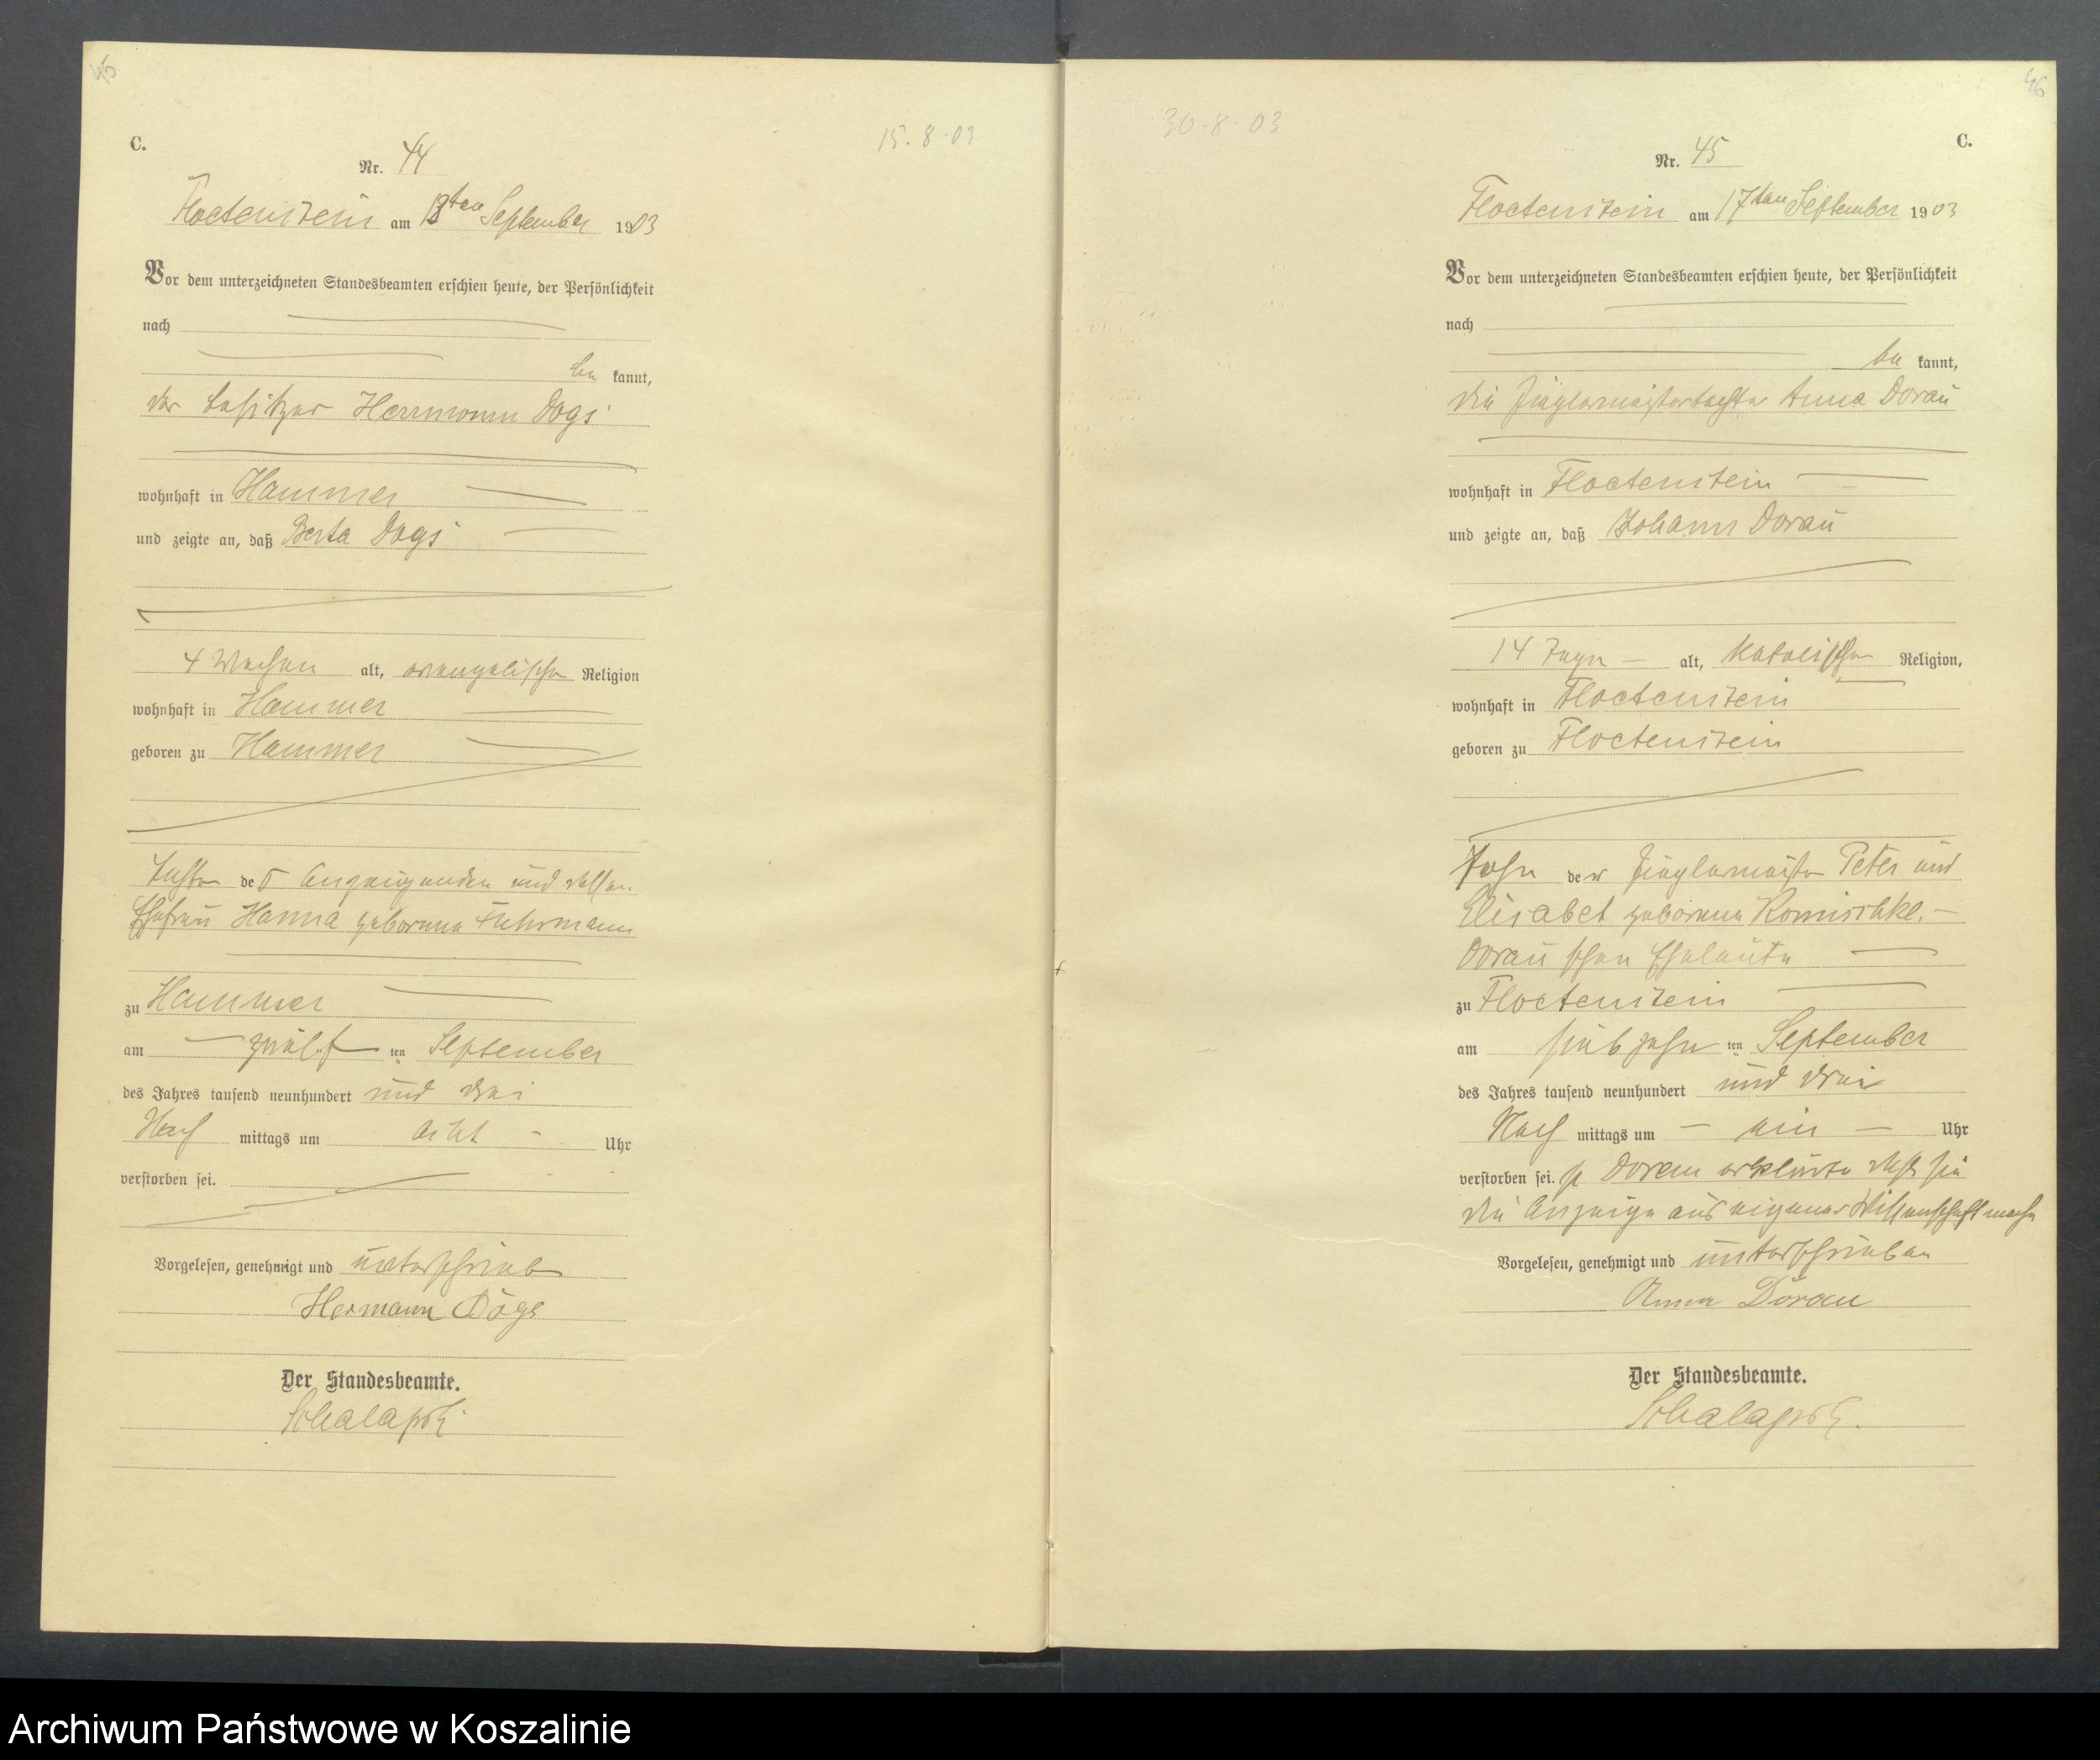 45
C.
15.8.03
Nr. 44
Floetenstein am 13ten September 1903
Vor dem unterzeichneten Standesbeamten erschien heute, der Persönlichkeit
nach
be kannt,
der Besitzer Herrmann Dogs
wohnhaft in Hammer
und zeigte an, daß Berta Dogs
4 Wochen alt, evangelischer Religion
wohnhaft in Hammer
geboren zu Hammer
Tochter des Anzeigenden und dessen
Ehefrau Hanna geborene Fuhrmann
zu Hammer
am zwölf ten September
des Jahres tausend neunhundert und drei
Nach mittags um acht Uhr
verstorben sei.
Vorgelesen, genehmigt und unterschrieb
Hermann Dogs
Der Standesbeamte.
46
30-8-03
C.
Nr. 45
Floetenstein am 17ten September 1903
Vor dem unterzeichneten Standesbeamten erschien heute, der Persönlichkeit
nach
be kannt,
die Zieglermeistertochter Anna Dorau
wohnhaft in Floetenstein
und zeigte an, daß Johann Dorau
14 Tage alt, katolischer Religion,
wohnhaft in Floetenstein
geboren zu Floetenstein
Sohn der Zieglermeister Peter und
Elisabet geborene
Dorau schen Eheleute
zu Floetenstein
am siebzehn ten September
des Jahres tausend neunhundert und drei
Nach mittags um ein Uhr
verstorben sei. Dorau erklärte daß sie
die Anzeige aus eigener Wissenschaft mache
Vorgelesen, genehmigt und unterschrieben
Anna Dorau
Der Standesbeamte.
Archiwum Państwowe w Koszalinie